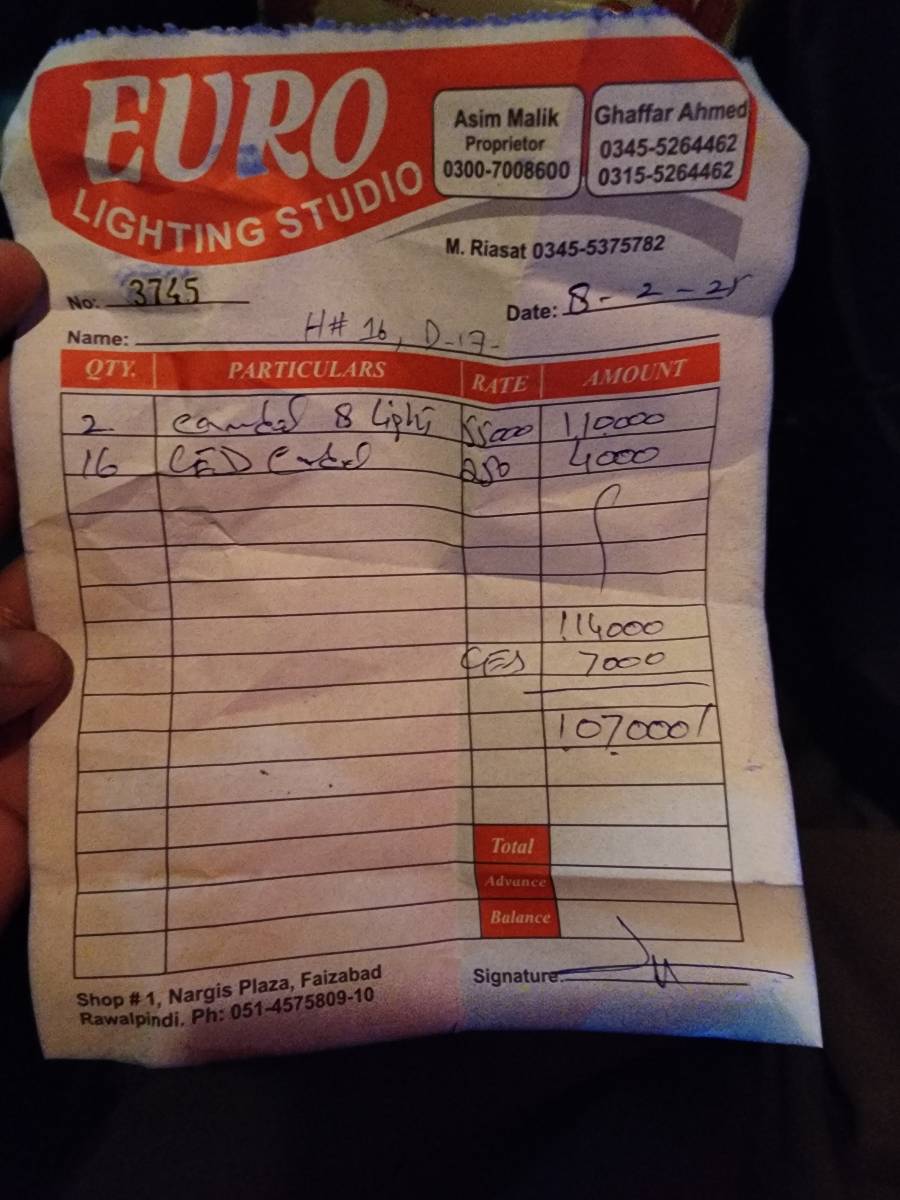 EURO
LIGHTING STUDIO
Asim Malik
Proprietor
0300-7008600
Ghaffar Ahmed
0345-5264462
0315-5264462
M. Riasat 0345-5375782
No: 3745
Date: 8-2-25
Name: H# 16, D-17-
QTY. PARTICULARS RATE AMOUNT
2 8 Light 55000 1,10,000
16 250 4000
114000
7000
107,000/
Total
Advance
Balance
Signature
Shop # 1, Nargis Plaza, Faizabad
Rawalpindi. Ph: 051-4575809-10